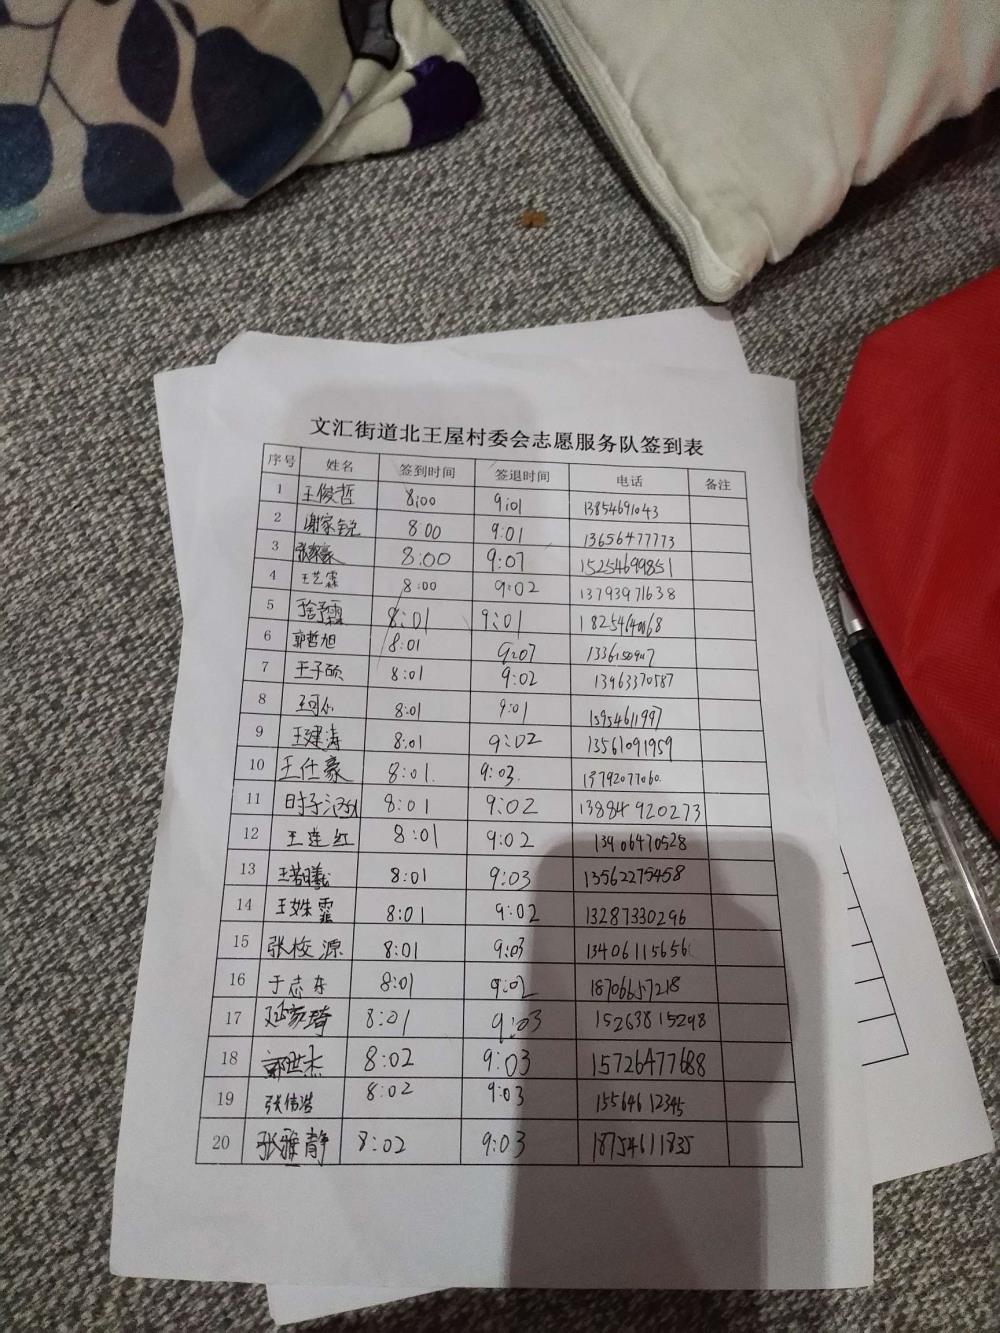 文汇街道北王屋村委会志愿服务队签到表
序号 姓名 签到时间 签退时间 电话 备注
1 王俊哲 8:00 9:01 13854691043
2 谢家锐 8:00 9:01 13656477773
3 张家豪 8:00 9:07 15254699851
4 王艺霖 8:00 9:02 13793971638
5 8:01 9:01
6 郭哲旭 8:01 9:07
7 王子硕 8:01 9:02 13963370587
8 8:01 9:01 15954611997
9 王建涛 8:01 9:02 13561091959
10 王仕豪 8:01 9:03 13792077060
11 8:01 9:02 13884920273
12 王莲红 8:01 9:02 13906470528
13 王若曦 8:01 9:03 13562275458
14 王姝霏 8:01 9:02 13287330296
15 张校源 8:01 9:03 13406115656
16 于志东 8:01 9:02 18706657218
17 8:01 9:03 15263815298
18 郭世杰 8:02 9:03 15726477688
19 张伟浩 8:02 9:03 15564612345
20 张雅静 8:02 9:03 18754611835